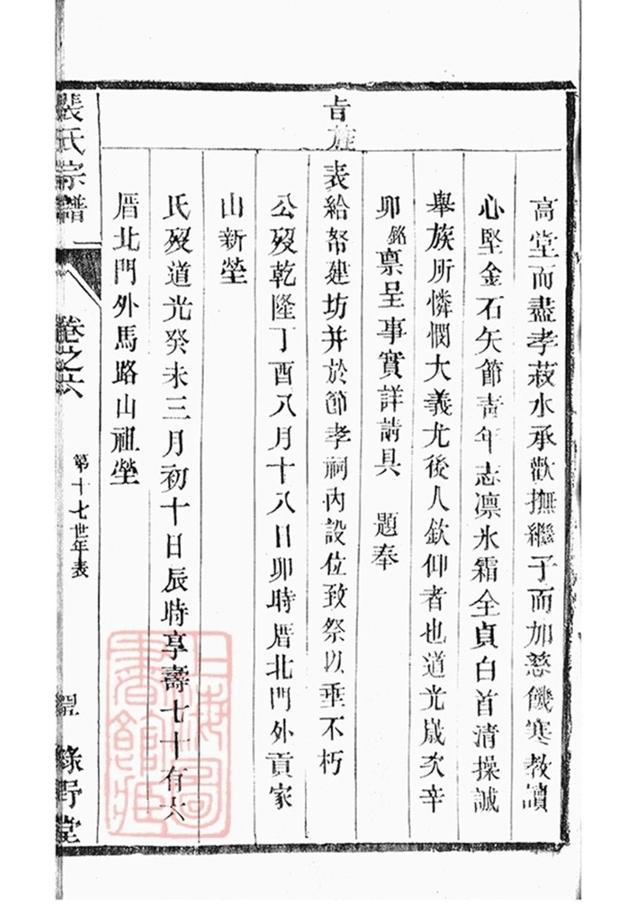 高堂而盡孝菽水承歡撫繼子而加慈饑寒教讀
心堅金石矢節靑年志凛氷霜全貞白首清操誠
舉族所憐憫大義尤後人欽仰者也道光歲次辛
卯銘禀呈事實詳請具 題奉
旨旌表給帑建坊并於節孝祠內設位致祭以垂不朽
公歿乾隆丁酉八月十八日卯時厝北門外貢家
山新塋
氏歿道光癸未三月初十日辰時享壽七十有六
厝北門外馬路山祖塋
裴氏宗譜
卷之六
第十七世年表
綠野堂
上海圖書館藏